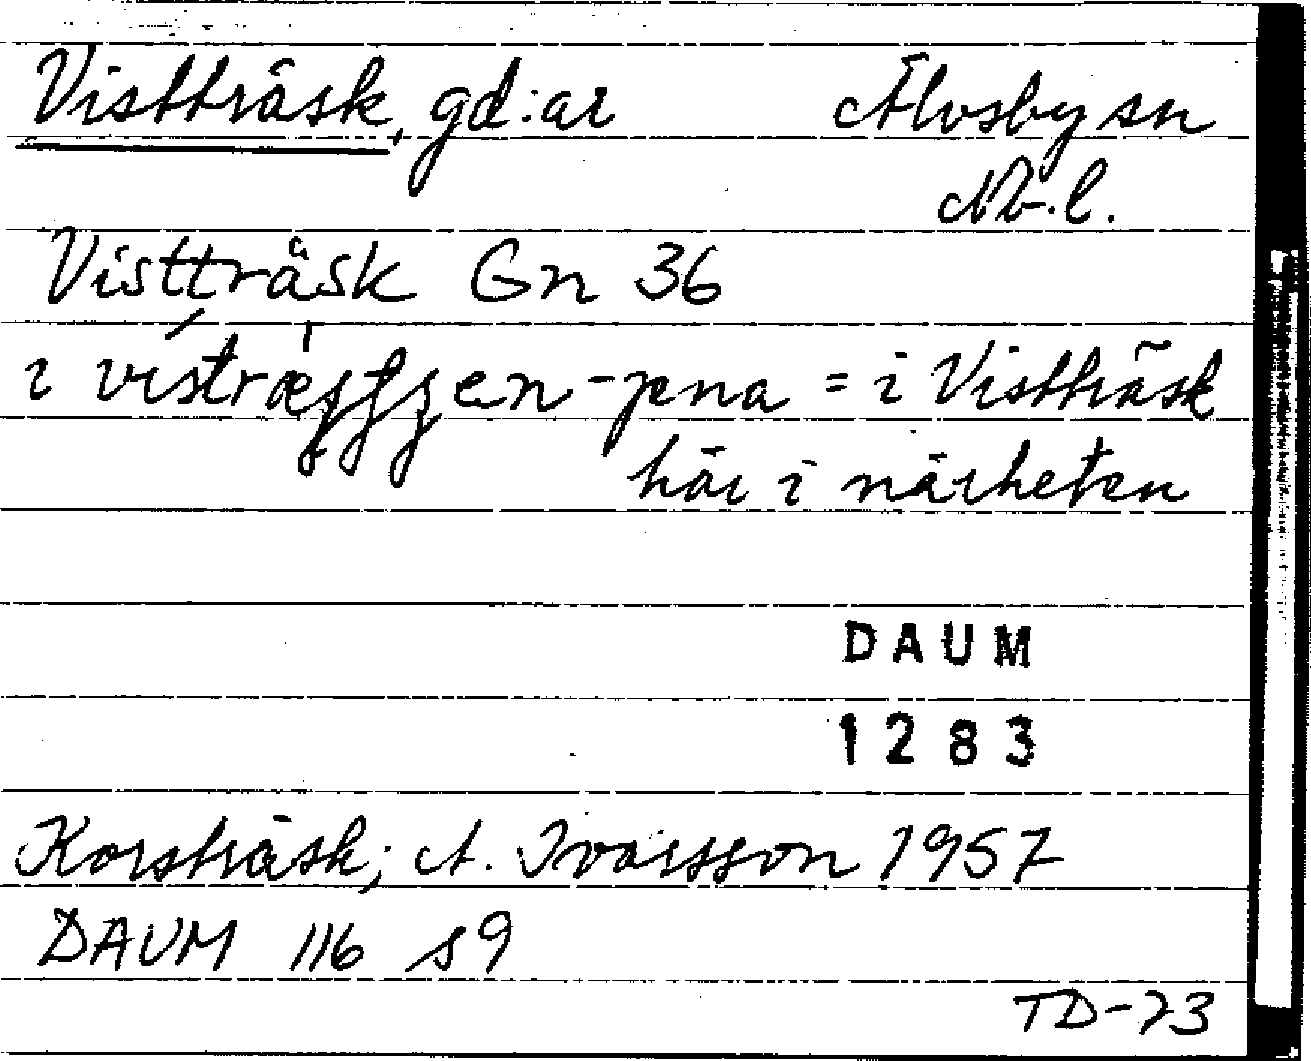 Vistträsk, gd:ar Älvsby sn
Nb.l.
Vistträsk Gn 36
i = i Vistträsk
här i närheten
DAUM
1283
Korsträsk; A. Ivarsson 1957
DAUM 116 s9
TD-73